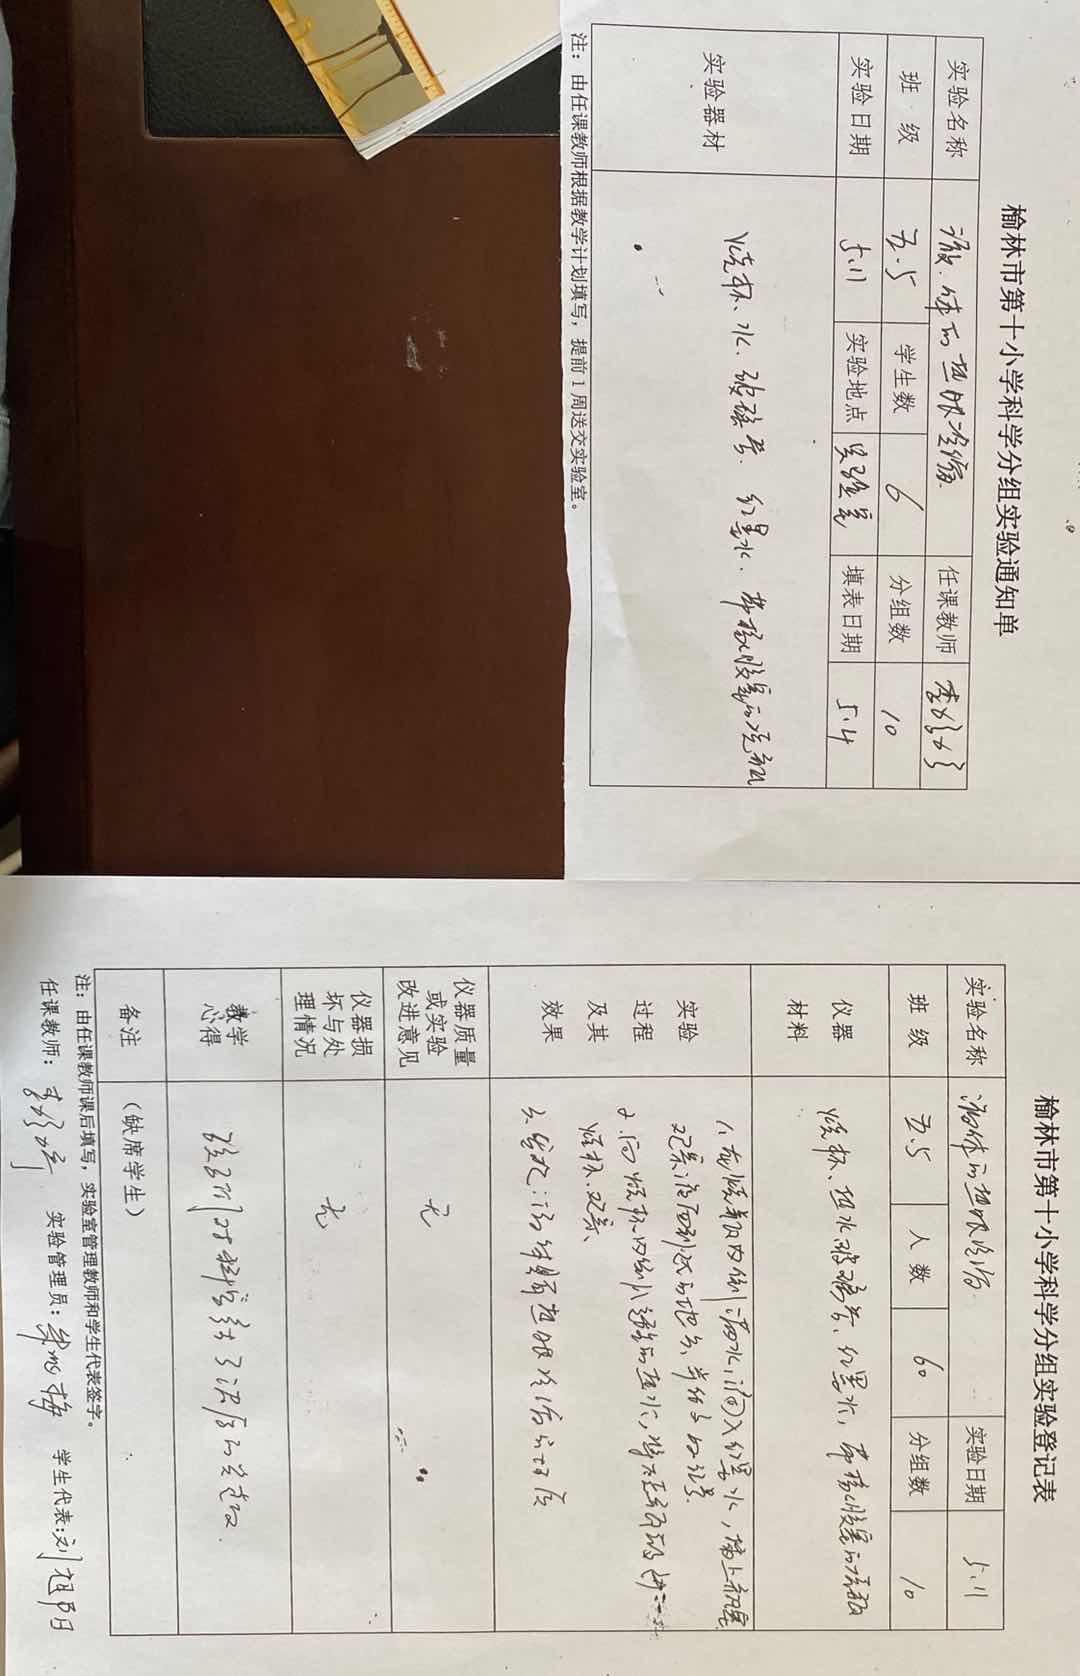 榆林市第十小学科学分组实验通知单
实验名称 液体的热胀冷缩 任课教师
班 级 五.5 学生数 6 分组数 10
实验日期 5.11 实验地点 实验室 填表日期 5.4
实验器材 烧杯、水、玻璃管、红墨水、带橡胶塞的烧瓶
注：由任课教师根据教学计划填写，提前1周送交实验室。
榆林市第十小学科学分组实验登记表
实验名称 液体的热胀冷缩 实验日期 5.11
班 级 五.5 人 数 60 分组数 10
仪器材料 烧杯、热水、玻璃管、红墨水，带橡胶塞的烧瓶
实验过程及其效果 1、在烧瓶内倒满水，滴入红墨水，塞上瓶塞
观察液面到达的地方，并做好记号
2.向烧杯内倒入适量的热水，将
烧杯、观察、
3、发现：液体具有热胀冷缩的性质
仪器质量或实验改进意见 无
仪器损坏与处理情况 无
教学心得 孩子们对科学有了浓厚的兴趣.
备注 （缺席学生）
注：由任课教师课后填写，实验室管理教师和学生代表签字。
任课教师： 实验管理员： 学生代表：刘祖阳